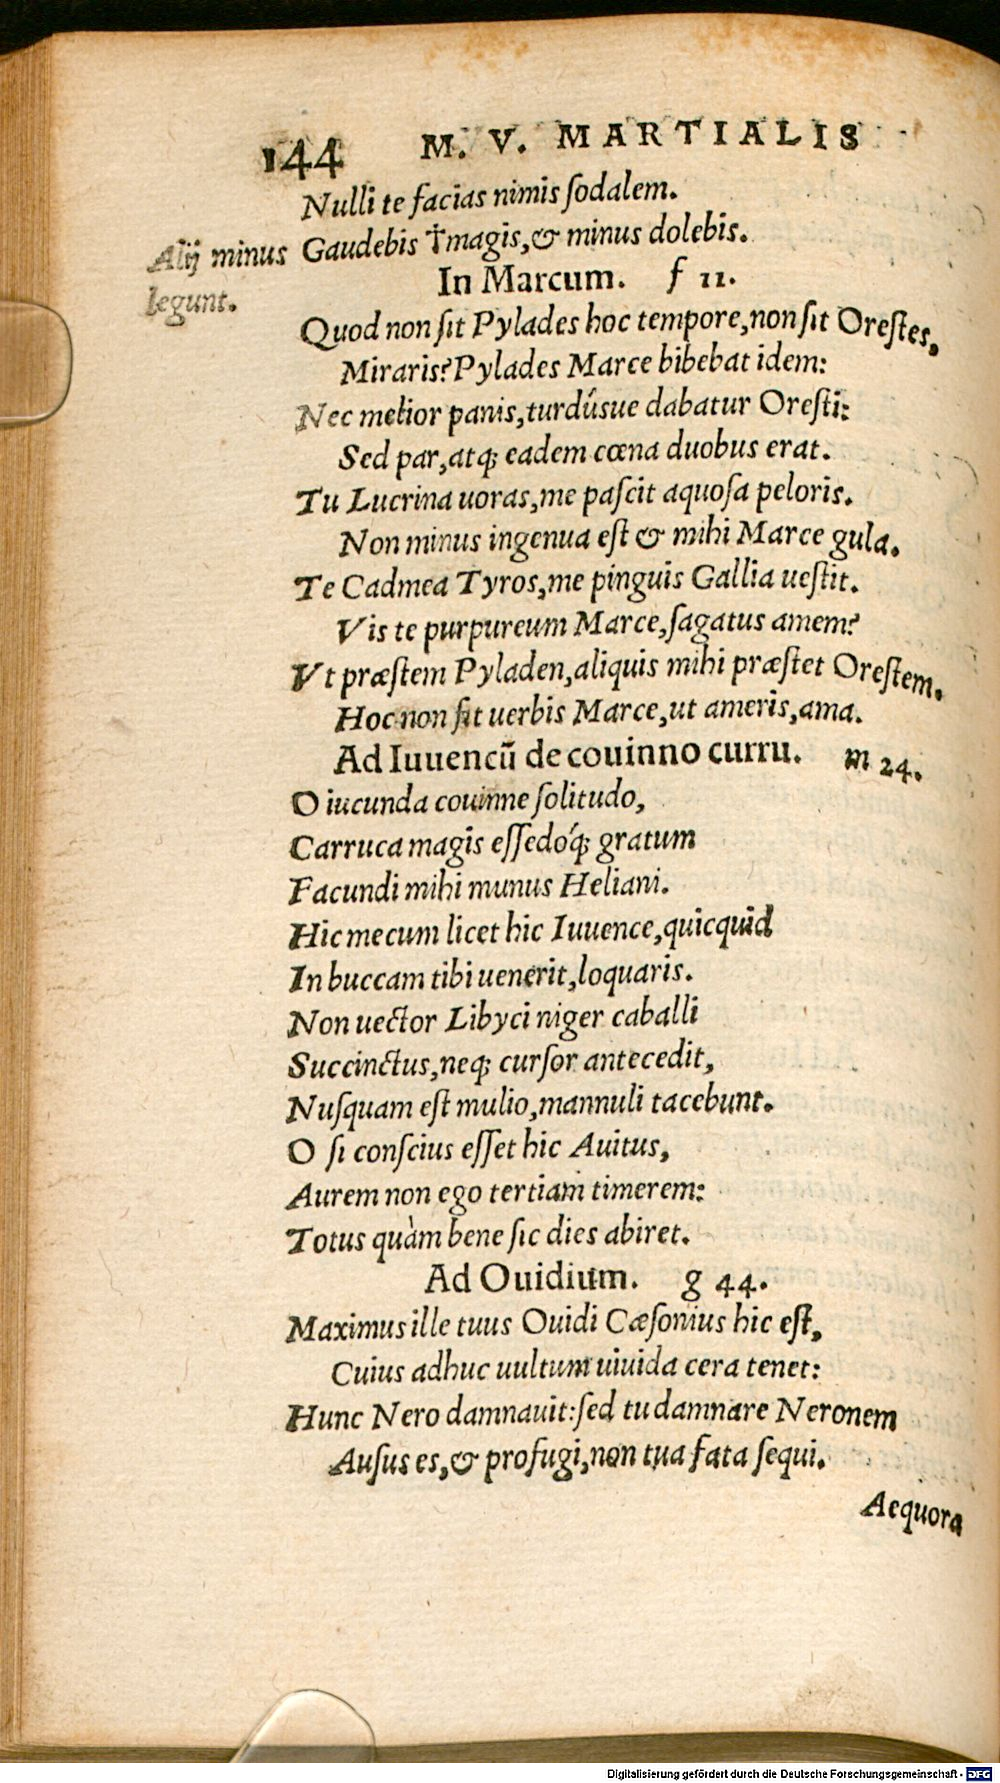 144 M. V. MARTIALIS
Nulli te facias nimis ſodalem.
Gaudebis †magis,& minus dolebis.
Alij minus
legunt.
In Marcum. f 11.
Quod non ſit Pylades hoc tempore,non ſit Oreſtes,
Miraris?Pylades Marce bibebat idem:
Nec melior panis,turdúsue dabatur Oreſti:
Sed par,atq; eadem cœna duobus erat.
Tu Lucrina uoras,me paſcit aquoſa peloris.
Non minus ingenua eſt & mihi Marce gula.
Te Cadmea Tyros,me pinguis Gallia ueſtit.
Vis te purpureum Marce,ſagatus amem?
Vt præſtem Pyladen,aliquis mihi præſtet Oreſtem.
Hoc non ſit uerbis Marce,ut ameris,ama.
Ad Iuuencũ de couinno curru. m 24.
O iucunda couinne ſolitudo,
Carruca magis eſſedóq; gratum
Facundi mihi munus Heliani.
Hic mecum licet hic Iuuence,quicquid
In buccam tibi uenerit,loquaris.
Non uector Libyci niger caballi
Succinctus,neq; curſor antecedit,
Nuſquam eſt mulio,mannuli tacebunt.
O ſi conſcius eſſet hic Auitus,
Aurem non ego tertiam timerem:
Totus quàm bene ſic dies abiret.
Ad Ouidium. g 44.
Maximus ille tuus Ouidi Cæſonius hic eſt,
Cuius adhuc uultum uiuida cera tenet:
Hunc Nero damnauit:ſed tu damnare Neronem
Auſus es,& profugi,non tua fata ſequi.
Aequora
Digitalisierung gefördert durch die Deutsche Forschungsgemeinschaft - DFG